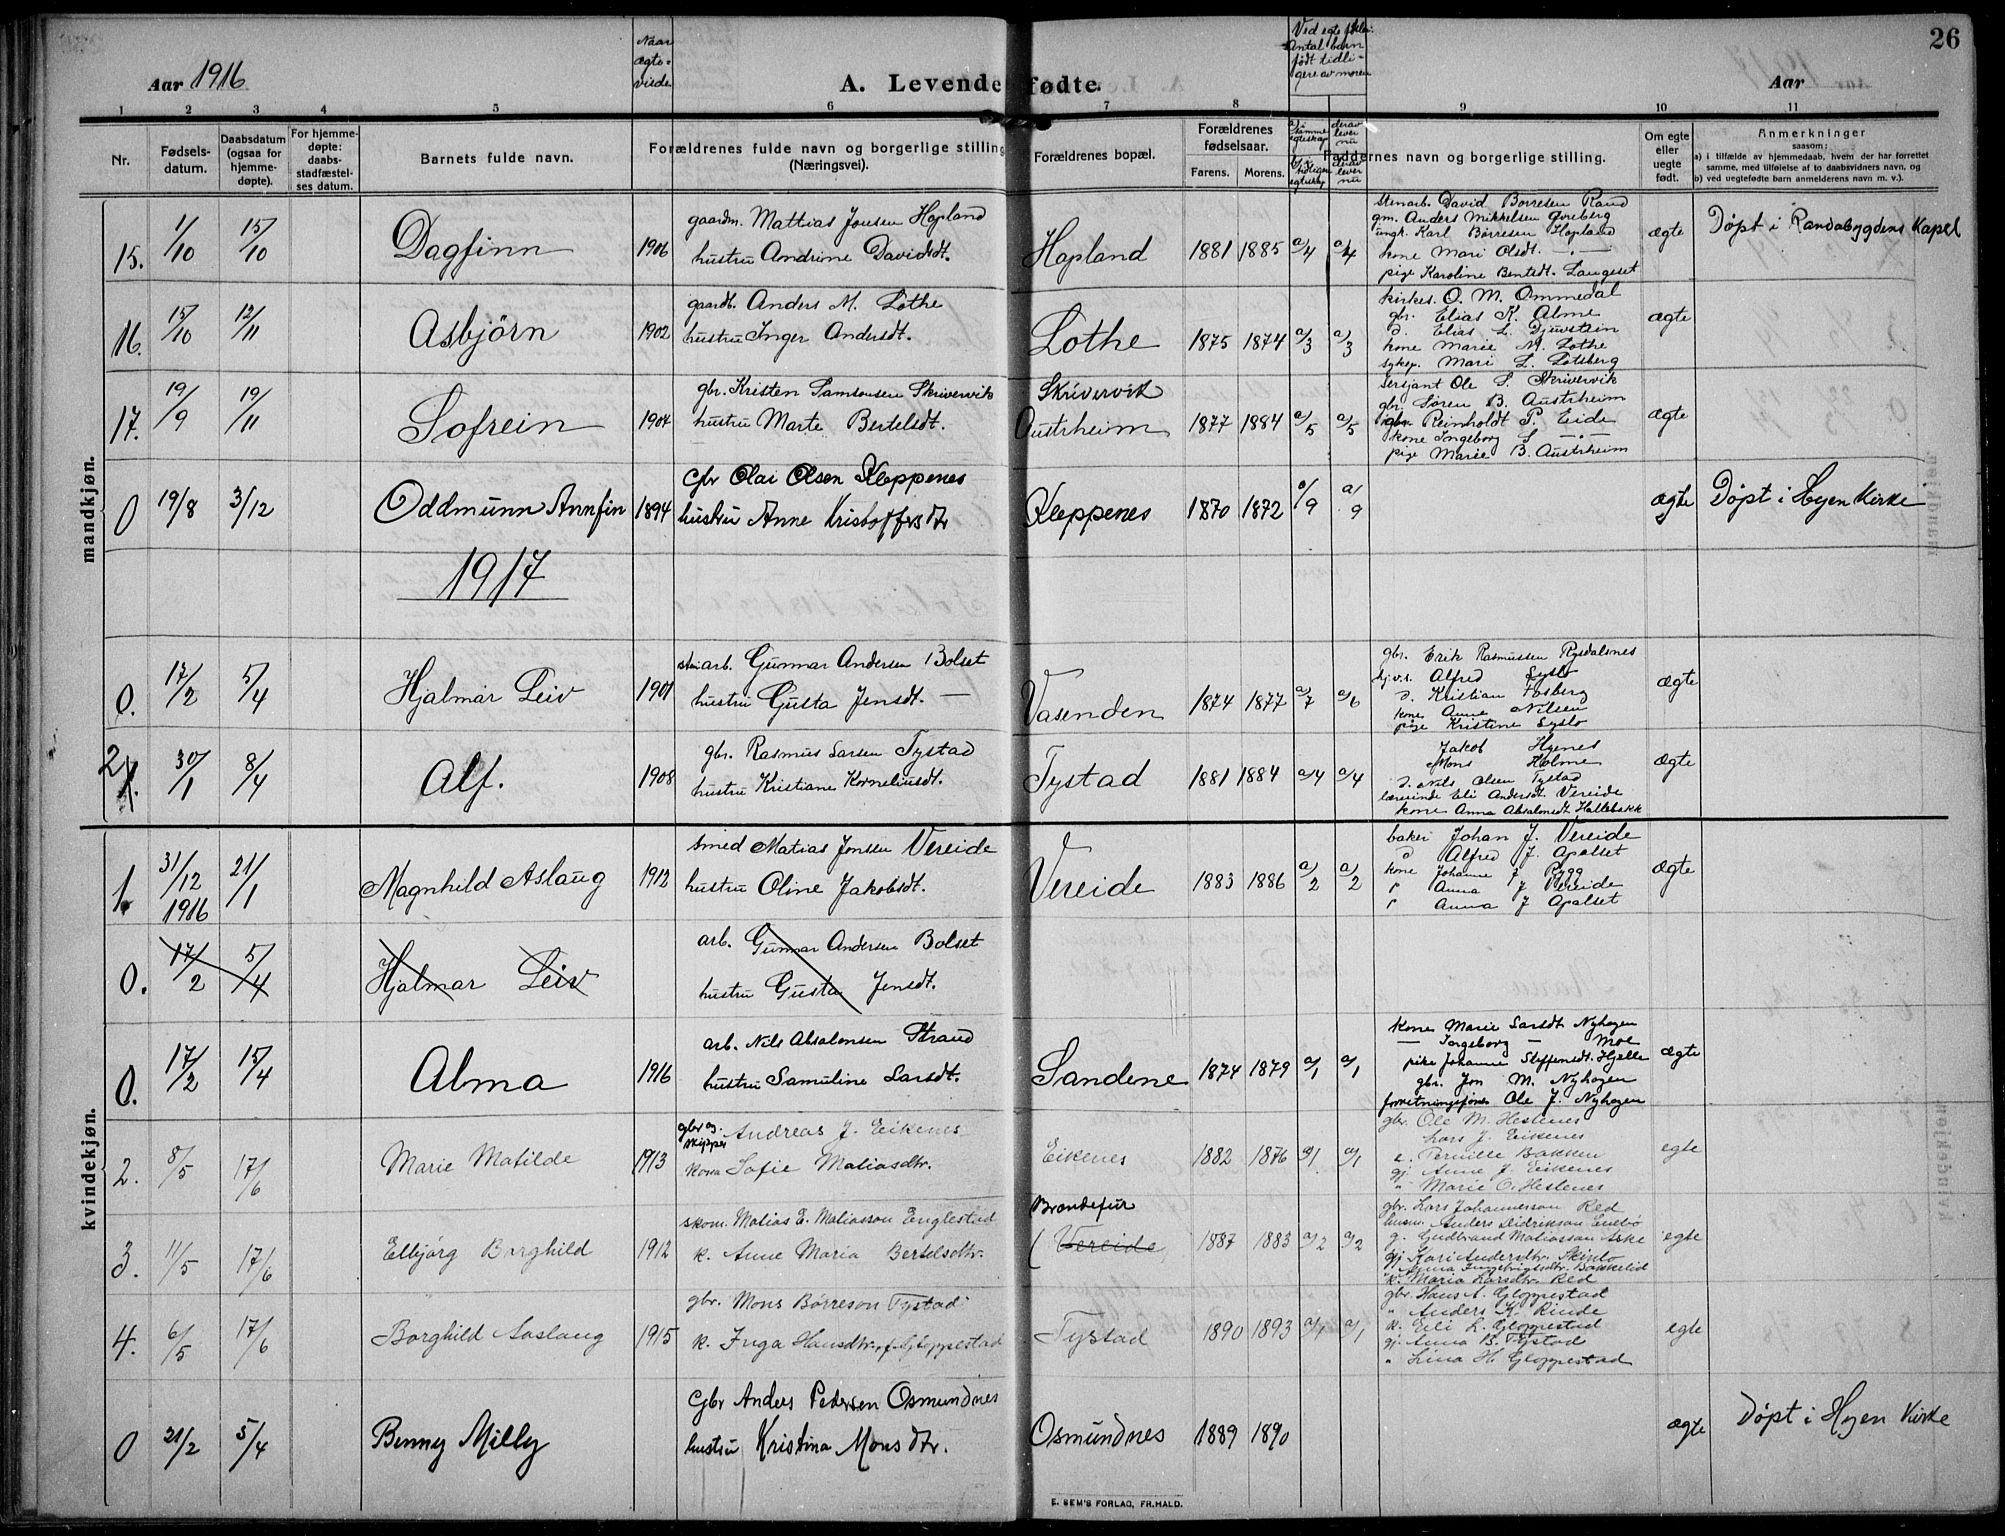 26
Aar 1916
Naar ægteviede.
A. Levendefødte.
Ved egte fødsler: Antal barn født tidligere av moren
Aar
1 2 3 4 5 6 7 8 9 10 11
Nr.
Fødselsdatum.
Daabsdatum (ogsaa for hjemmedøpte).
For hjemmedøpte: daabsstadfæstelses datum.
Barnets fulde navn.
Forældrenes fulde navn og borgerlige stilling (Næringsvei).
Forældrenes bopæl.
Forældrenes fødselsaar.
Farens. Morens.
Faddernes navn og borgerlige stilling.
Om egte eller uegte født.
Anmerkninger
saasom:
a) i tilfælde av hjemmedaab, hvem der har forrettet samme, med tilføielse af to daabsvidners navn, og
b) ved uegtefødte barn anmelderens navn m. v.).
mandkjøn.
15. 1/10 15/10 Dagfinn 1906
gaardm. Mattias Jonsen Hopland
hustru Andrine Davidsdt.
Hopland 1881 1885 a/4 a/4
Stenarb. David Børresen Rand
gm. Anders Mikkelsen Gvreberg
ungk. Karl Børresen Hopland
kone Mari Olsdt. — . —
pige Karoline Bentsdt. Langeset
ægte Døpt i Randabygdens Kapel
16. 15/10 12/11 Asbjörn 1902
gaardb. Anders M. Lothe
hustru Inger Andersdt.
Lothe 1875 1874 a/3 a/3
kirkes. O. M. Ommedal
gbr. Elias K. Alme
d. Elias L. Djuvstein
kone Marie M. Lothe
sykep. Mari L. Lotsberg
ægte
17. 19/9 19/11 Sofrein 1904
gbr. Kristen Samsonsen Skrivervik
hustru Marte Bertelsdt.
Skrivervik
Austrheim 1877 1884 a/5 a/5
Sersjant Ole S. Skrivervik
gbr. Søren B. Austrheim
gbr. Reinholdt P. Eide
kone Ingeborg S. — . —
pige Marie B. Austrheim
ægte
0 19/8 3/12 Oddmunn Annfin 1894
Gbr Olai Olsen Kleppenes
hustru Anne Kristoffersdtr
Kleppenes 1870 1872 a/9 a/9
ægte Døpt i Hyen Kirke
1917
0. 17/2 5/4 Hjalmar Leiv 1901
stenarb. Gunnar Andersen Bolset
hustru Gusta Jensdt. —
Vasenden 1874 1877 a/7 a/6
gbr. Erik Rasmussen Rysdalsnes
Alfred Syslo
d. Kristian Fosberg
kone Anne Nilsen
pige Kristine Syslo
ægte
2. 30/1 8/4 Alf. 1908
gbr. Rasmus Larsen Tystad
hustru Kristiane Korneliusdt.
Tystad 1881 1884 a/4 a/4
Jakob Hyenes
Mons Holme
d. Nils Olsen Tystad
lærerinde Eli Andersdt. Vereide
kone Anna Absalonsdt. Hallebakk
ægte
kvindekjøn.
1. 31/12 1916 21/1 Magnhild Aslaug 1912
Smed Matias Jonsen Vereide
hustru Oline Jakobsdt.
Vereide 1883 1886 a/2 a/2
baker Johan J. Vereide
d Alfred J. Apalset
kone Johanne J Rygg
" Anna J Vereide
" Anna J Apalset
ægte
0. 17/2 5/4 Hjalmar Leiv
arb. Gunnar Andersen Bolset
hustru Gusta Jensdt.
0. 17/2 15/4 Alma 1916
arb. Nils Absalonsen Strand
hustru Samuline Larsdt.
Sandene 1874 1879 a/1 a/1
kone Marie Larsdt Nyhagen
— Ingeborg — Moe
pike Johanne Steffensdt. Hjelle
gbr. Jon M. Nyhagen
forretningsfører Ole J. Nyhagen
ægte
2. 8/5 17/6 Marie Matilde 1913
gbr og skipper Andreas J. Eikenes
kona Sofie Matiasdtr.
Eikenes 1882 1876 a/1 a/1
gbr. Ole M. Hestenes
Lars J. Eikenes
e. Pernille Bakken
gj. Anne J. Eikenes
" Marie O. Hestenes
egte
3. 11/5 17/6 Elbjørg Borghild 1912
skom. Matias E. Matiasson Englestad
k. Anne Maria Bertelsdtr.
Brandefur
( Vereide 1887 1883 a/2 a/2
gbr. Lars Johannesson Red
husm. Anders Didrikson Enebø
g. Gudbrand Matiasson Aske
gj. Kari Andersdtr. Skinlo
" Anna Ingebrigtsdtr. Bakkelid
k. Maria Larsdtr. Red
egte
4. 6/5 17/6 Borghild Aaslaug 1915
gbr. Mons Børreson Tystad
k. Inga Hansdtr. f. Gloppestad
Tystad 1890 1893 a/1 a/1
gbr. Hans A. Gloppestad
" Anders K. Rinde
k. Eli L. Gloppestad
gj. Anna B. Tystad
" Lina H. Gloppestad
egte
0 21/2 5/4 Benny Milly
Gbr Anders Pedersen Osmundnes
hustru Kristina Monsdtr.
Osmundnes 1889 1890
ægte Døpt i Hyen Kirke
E. SEM'S FORLAG, FR.HALD.